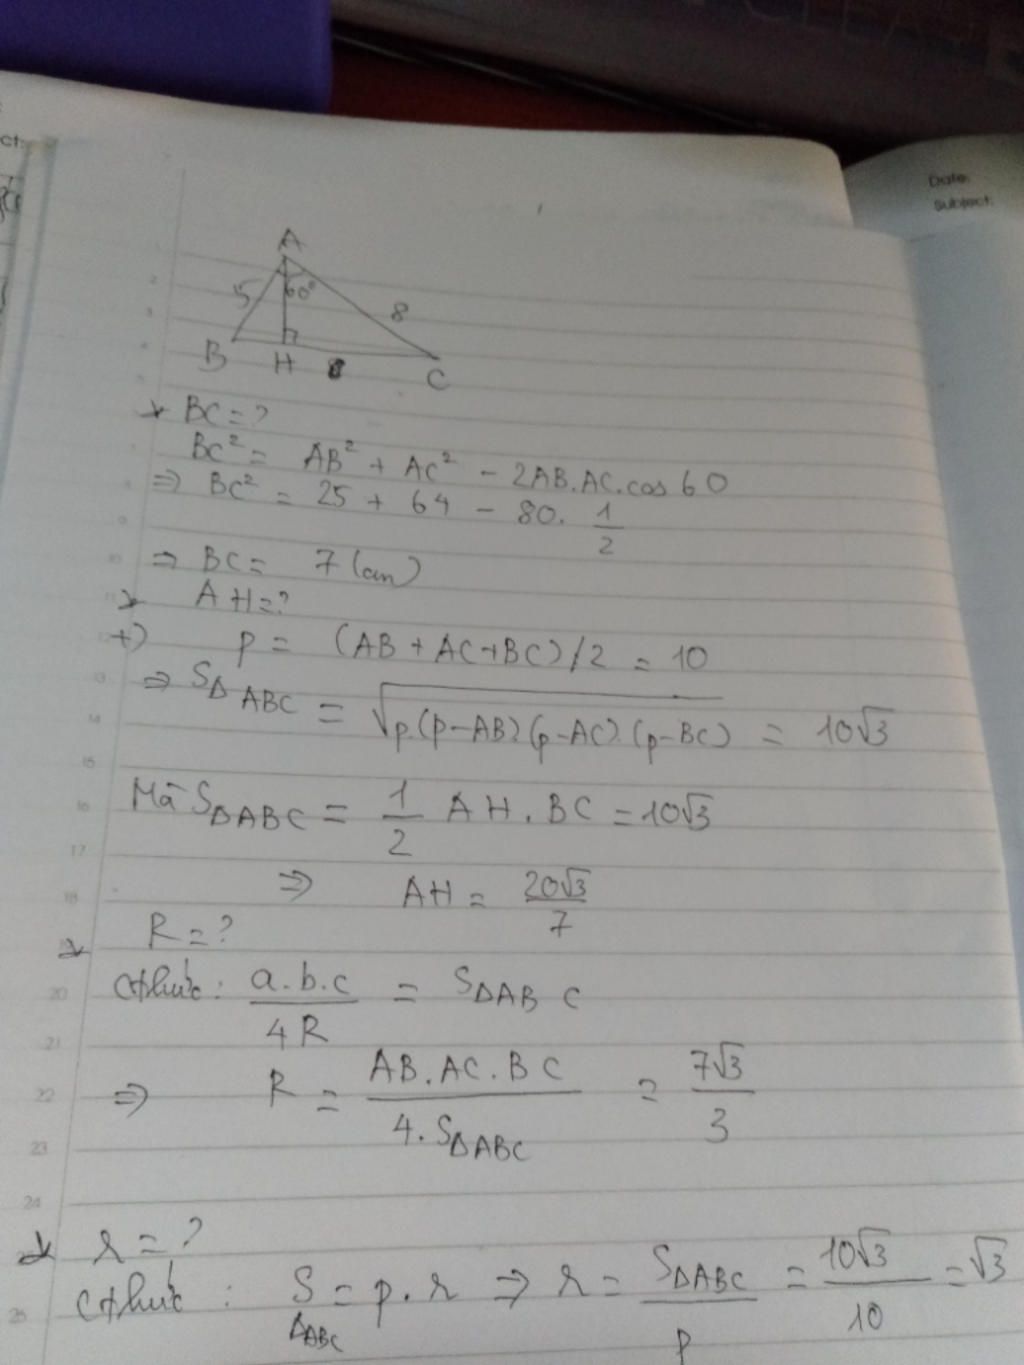 Date:
Subject:
A
5
60°
8
B
H
C
BC = ?
BC² = AB² + AC² - 2AB.AC.cos 60
⇒ BC² = 25 + 64 - 80. 1/2
⇒ BC = 7 (cm)
AH = ?
+) p = (AB + AC + BC)/2 = 10
⇒ SΔABC = √p.(p-AB).(p-AC).(p-BC) = 10√3
Mà SΔABC = 1/2 AH . BC = 10√3
⇒ AH = 20√3/7
R = ?
Cthức : a.b.c/4R = SΔABC
⇒ R = AB.AC.BC/4.SΔABC = 7√3/3
r = ?
Cthức : SΔABC = p.r ⇒ r = SΔABC/p = 10√3/10 = √3